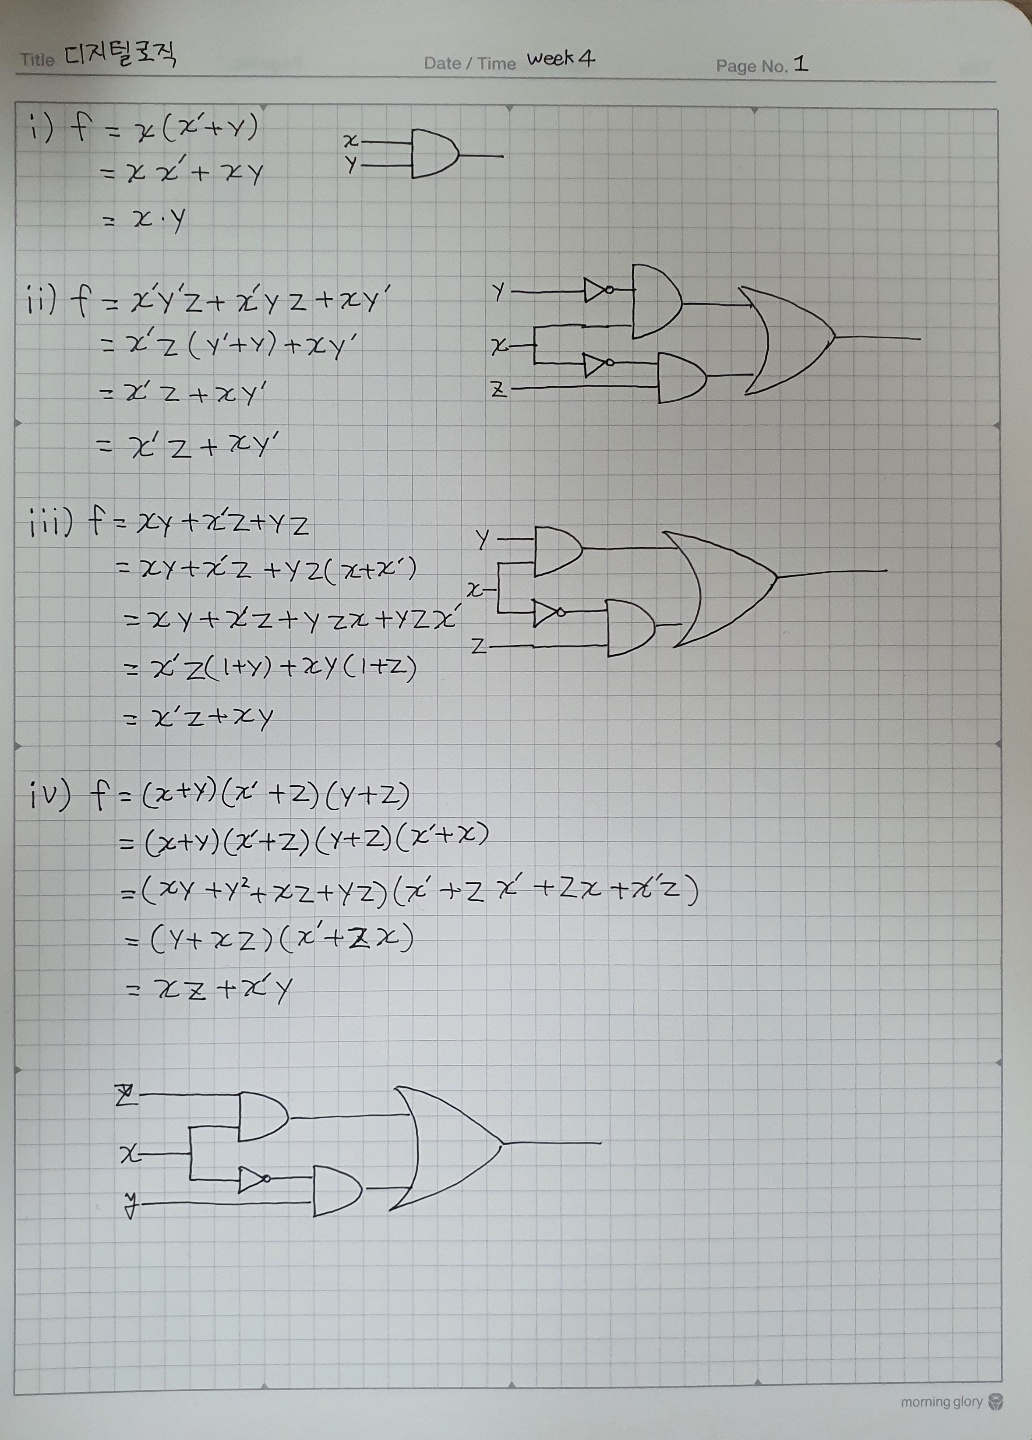 Title 디지털로직 Date / Time week 4 Page No. 1
i) f = x(x'+y)
= x x' + xy
= x·y
x
y
ii) f = x'y'z + x'yz + xy'
= x'z(y'+y) + xy'
= x'z + xy'
= x'z + xy'
y
x
z
iii) f = xy + x'z + yz
= xy + x'z + yz(x+x')
= xy + x'z + yzx + yzx'
= x'z(1+y) + xy(1+z)
= x'z + xy
y
x
z
iv) f = (x+y)(x'+z)(y+z)
= (x+y)(x'+z)(y+z)(x'+x)
= (xy + y² + xz + yz)(x' + zx' + zx + x'z)
= (y + xz)(x' + zx)
= xz + x'y
z
x
y
morning glory